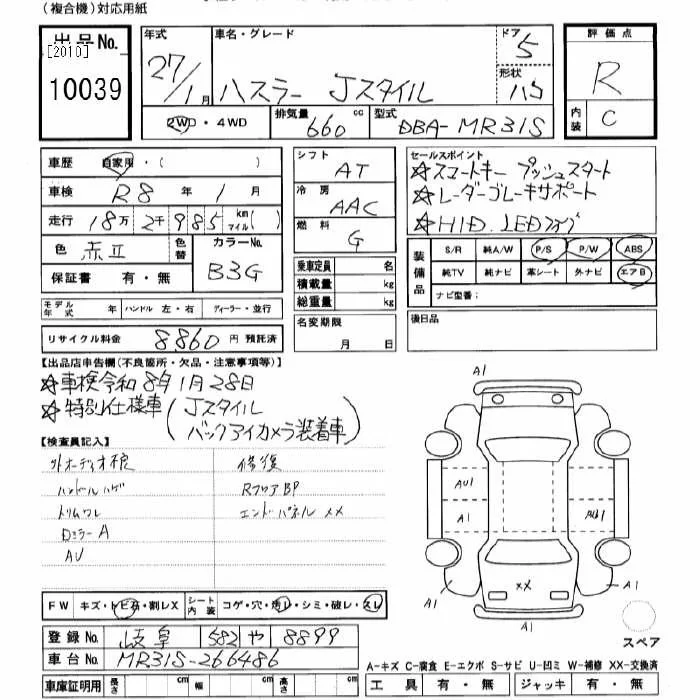 (複合機)対応用紙
出品No.
[2010]
10039
年式 27/1月
車名・グレード
ハスラー Jスタイル
ドア 5
形状 ハコ
2WD・4WD
排気量 660 cc
型式 DBA-MR31S
評価点
R
内装 C
車歴 自家用・( )
車検 R8 年 1 月
走行 18万 2千 985 km マイル( )
色 赤II
色替
カラーNo. B3G
保証書 有・無
シフト AT
冷房 AAC
燃料 G
乗車定員 名
積載量 kg
総重量 kg
セールスポイント
☆スマートキー プッシュスタート
☆レーダーブレーキサポート
☆HID. LEDフォグ
装備品 S/R 純A/W P/S P/W ABS
純TV 純ナビ 革シート 外ナビ エアB
ナビ型番:
モデル年式 年 ハンドル 左・右 ディーラー・並行
リサイクル料金 8,860 円 預託済
名変期限
月 日
後日品
【出品店申告欄(不良箇所・欠品・注意事項等)】
☆車検令和8年1月28日
☆特別仕様車(Jスタイル
バックアイカメラ装着車)
【検査員記入】
外オーディオ検 修復
ハンドルハゲ Rフロア BP
トリムワレ エンドパネル XX
DミラーA
AU
A1
AU1
A1
AUL1
XX
A1
A1
A1
スペア
FW キズ・トビ石・割レX
シート内装 コゲ・穴・汚レ・シミ・破レ・スレ
登録No. 岐阜 582 や 8899
車台No. MR31S-266486
車庫証明用 長さ cm 幅 cm 高さ cm
A-キズ C-腐食 E-エクボ S-サビ U-凹ミ W-補修 XX-交換済
工具 有・無 ジャッキ 有・無